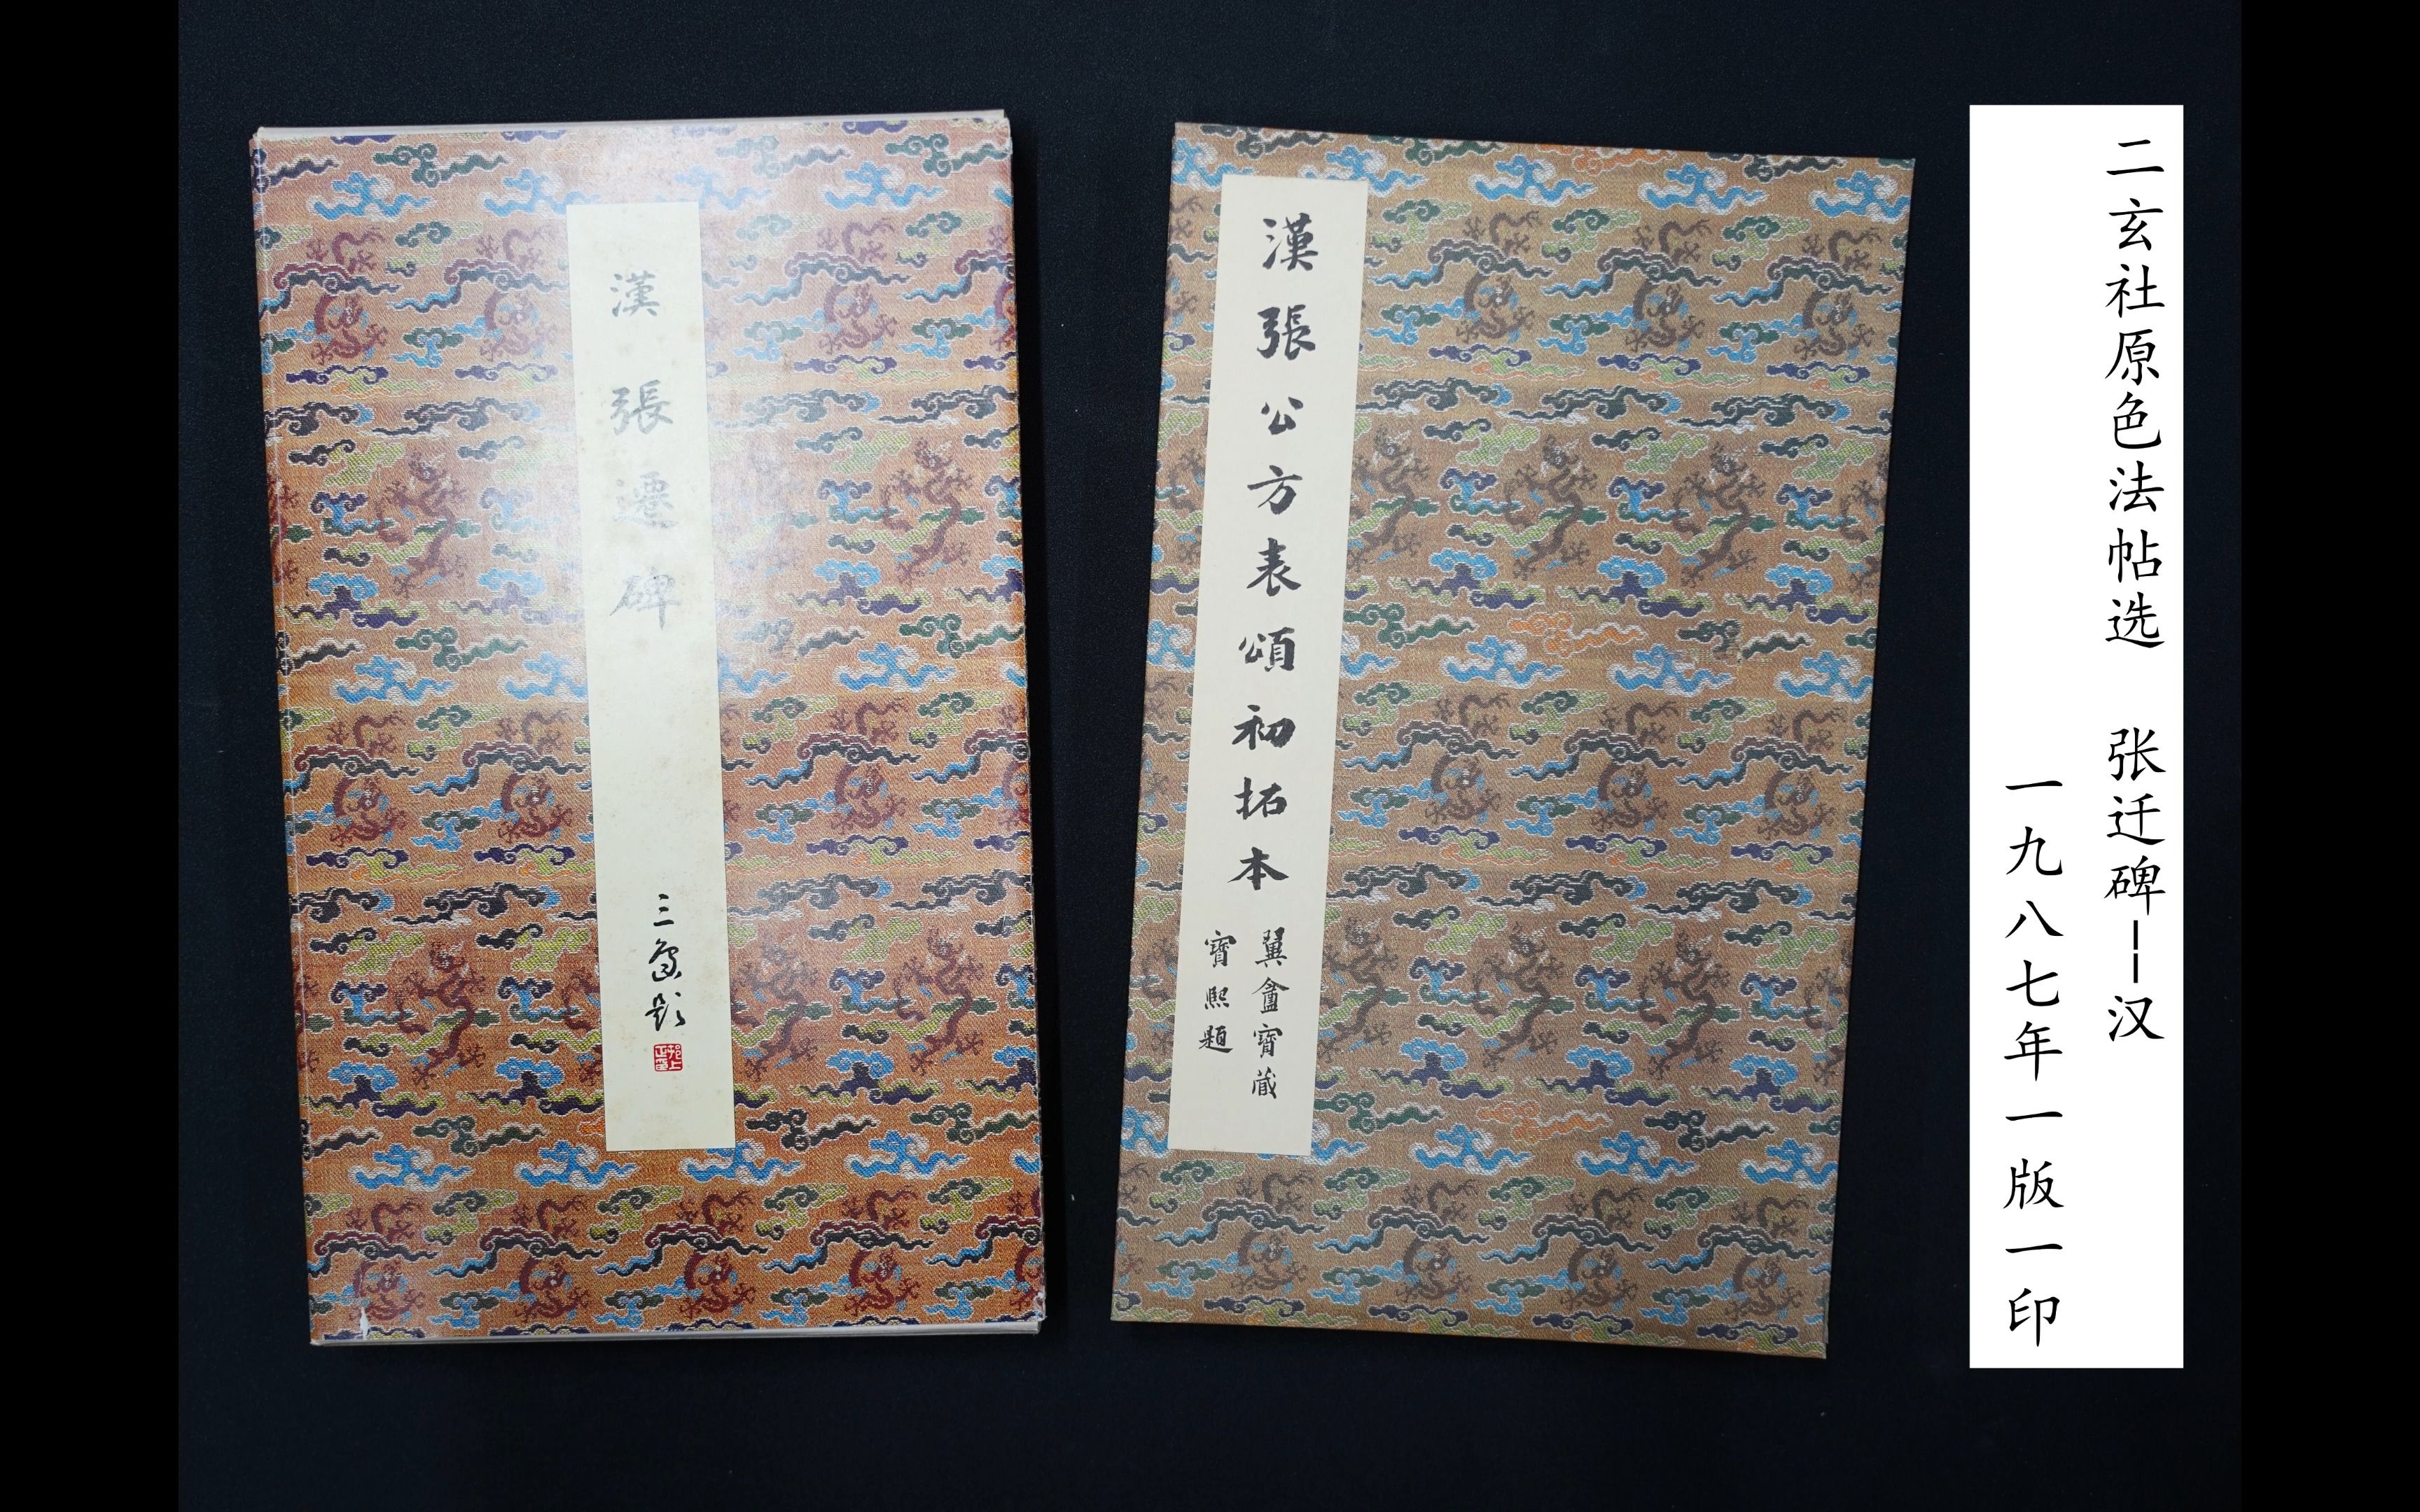 二玄社原色法帖选 张迁碑--汉
一九八七年一版一印
漢張公方表頌初拓本
翼盦寳藏
寶熙題
漢張遷碑
三象題